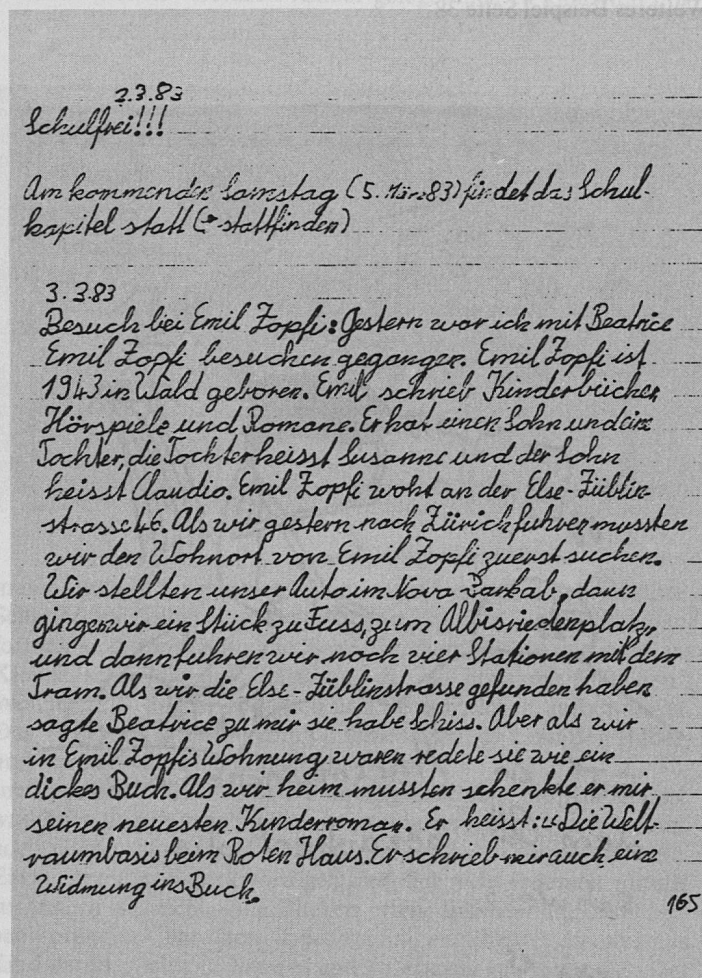 2.3.83
Schulfrei!!!
Am kommenden Samstag (5. März 83) findet das Schul-
kapitel statt (→ stattfinden)
3.3.83
Besuch bei Emil Zopfi: Gestern war ich mit Beatrice
Emil Zopfi besuchen gegangen. Emil Zopfi ist
1943 in Wald geboren. Emil schrieb Kinderbücher,
Hörspiele und Romane. Er hat einen Sohn und eine
Tochter, die Tochter heisst Susanne und der Sohn
heisst Claudio. Emil Zopfi woht an der Else-Züblin-
strasse 46. Als wir gestern nach Zürich fuhren mussten
wir den Wohnort von Emil Zopfi zuerst suchen.
Wir stellten unser Auto im Nova Park ab, dann
gingen wir ein Stück zu Fuss, zum Albisriedenplatz,
und dann fuhren wir noch vier Stationen mit dem
Tram. Als wir die Else-Züblinstrasse gefunden haben
sagte Beatrice zu mir sie habe Schiss. Aber als wir
in Emil Zopfis Wohnung waren redete sie wie ein
dickes Buch. Als wir heim mussten schenkte er mir
seinen neuesten Kinderroman. Er heisst: "Die Welt-
raumbasis beim Roten Haus. Er schrieb mir auch eine
Widmung ins Buch.
165